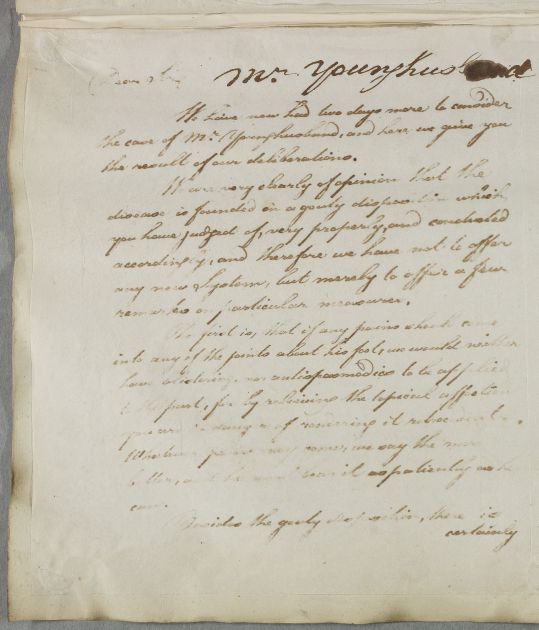 Dear Sir
Mr. Younghusband
We have now had two days more to consider
the case of Mr. Younghusband, and here we give you
the result of our deliberations.
We are very clearly of opinion that the
disease is founded in a gouty disposition which
you have judged of, very properly, and conducted
accordingly, and therefore we have not to offer
any new System, but merely to offer a few
remarks on particular measures.
The first is, that if any pains should come
into any of the joints about his foot, we would neither
have blistering nor antispasmodics to be applied
to the part, for by relieving the topical affection
you are in danger of rendering it retrocedent.
Whatever pains may come, we say the more
better, and he must bear it as patiently as he
can.
Besides the gouty disposition, there is
certainly